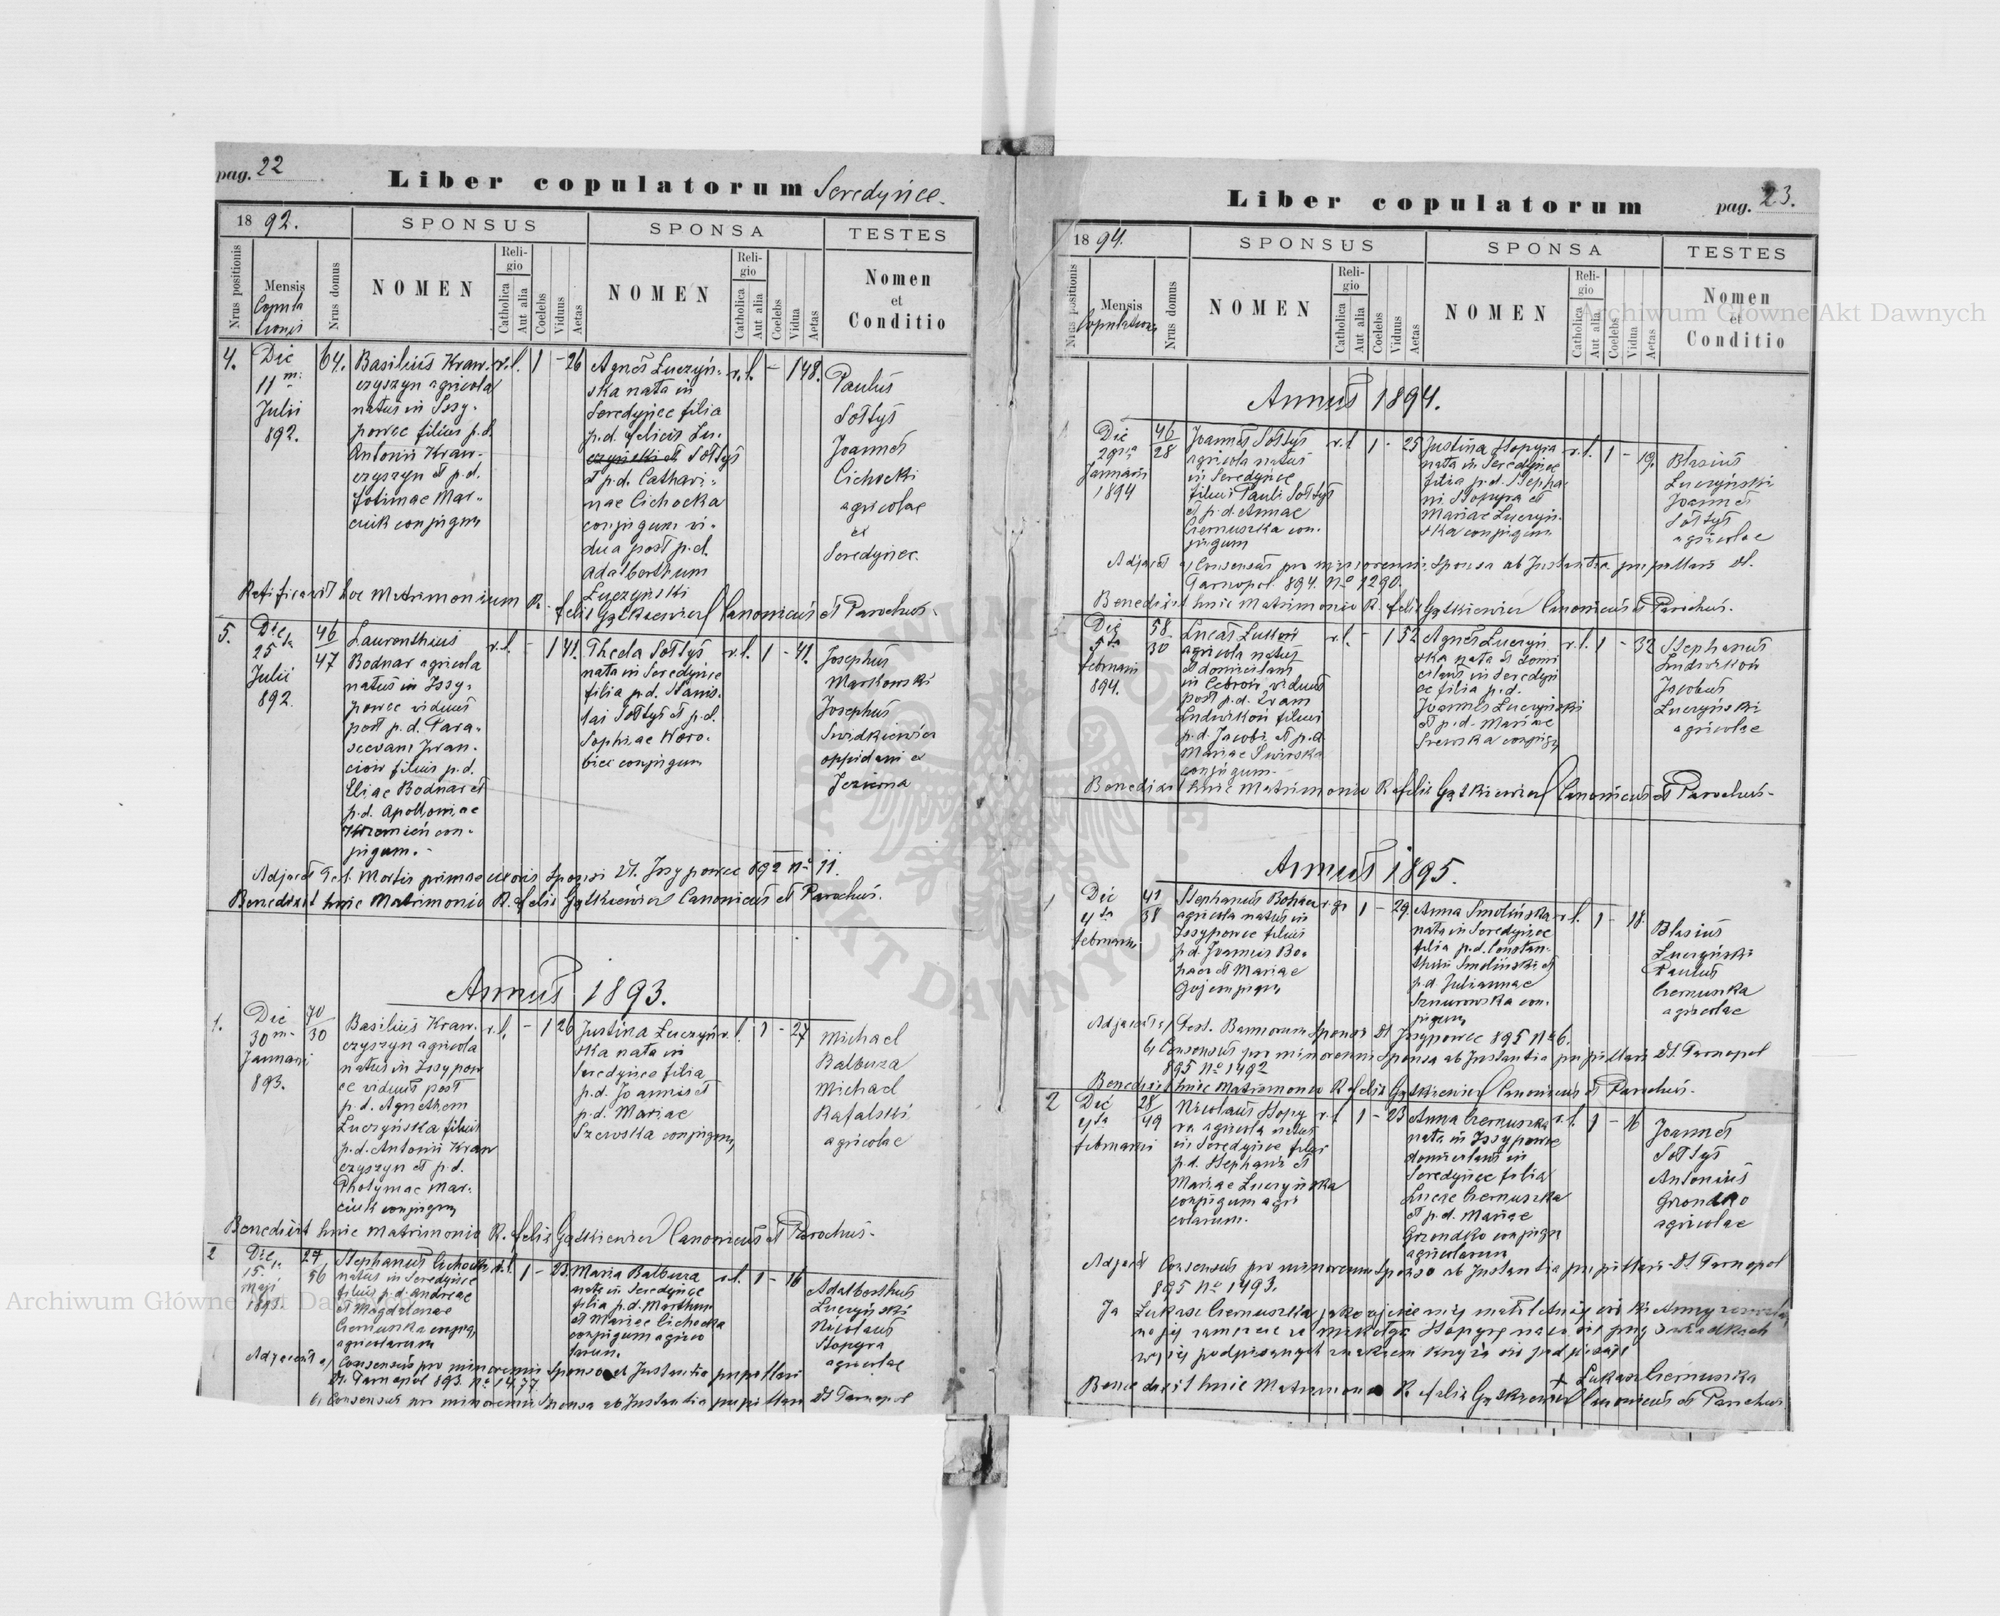 pag. 22
Liber copulatorum Seredyńce.
1892.
SPONSUS
SPONSA
TESTES
Nrus positionis
Mensis
Copula
tionis
Nrus domus
NOMEN
Religio
Catholica
Aut alia
Coelebs
Viduus
Aetas
NOMEN
Religio
Catholica
Aut alia
Coelebs
Vidua
Aetas
Nomen
et
Conditio
4.
Die
11 m.
Julii
892.
64.
Basilius Kraw-
czyszyn agricola
natus in Jssy-
powce filius p.d.
Antonii Kraw-
czyszyn et p.d.
Fotimae Mar-
ciuk conjugum
r.l. 1 - 26
Agnes Łuczyń-
ska nata in
Seredyńce filia
p.d. Felicis Łu-
czyński et Sołtys
et p.d. Cathari-
nae Cichocka
conjugum vi-
dua post p.d.
Adalbertum
Łuczyński
r.l. - 1 48.
Paulus
Sołtys
Joannes
Cichocki
agricolae
ex
Seredyńce
Ratificavit hoc Matrimonium R. Felix Gątkiewicz Canonicus et Parochus.
5.
Die
25 ta
Julii
892.
46
47
Laurenthius
Bodnar agricola
natus in Jssy-
powce viduus
post p.d. Para-
scevam Jwan-
ciow filius p.d.
Eliae Bodnar et
p.d. Apolloniae
Krzemień con-
jugum.
r.l. - 1 41.
Thecla Sołtys
nata in Seredyńce
filia p.d. Stanis-
lai Sołtys et p.d.
Sophiae Woro-
biec conjugum
r.l. 1 - 41.
Josephus
Markowski
Josephus
oppidani ex
Jezierna
Adjacet Test. Mortis primae uxoris Sponsi dt. Jssypowce 892 No 11.
Benedixit huic Matrimonio R. Felix Gątkiewicz Canonicus et Parochus.
Annus 1893.
1.
Die
30 ma
Januarii
893.
70
30
Basilius Kraw-
czyszyn agricola
natus in Jssypow
ce viduus post
p.d. Agnethem
Łuczyńska filius
p.d. Antonii Kraw
czyszyn et p.d.
Photymae Mar-
ciuk conjugum
r.l. - 1 26
Justina Łuczyń
ska nata in
Seredyńce filia
p.d. Joannis et
p.d. Mariae
Szewska conjugum
r.l. 1 - 27
Michael
Balbuza
Michael
Rafalski
agricolae
Benedixit huic Matrimonio R. Felix Gątkiewicz Canonicus et Parochus.
2
Die
15.
Maji
1893.
27
56
Stephanus Cichocki
natus in Seredyńce
filius p.d. Andreae
et Magdalenae
Czemuszka conjug
agricolarum
r.l. 1 - 23.
Maria Balbuza
nata in Seredyńce
filia p.d. Marthini
et Mariae Cichocka
conjugum agrico
larum.
r.l. 1 - 16
Adalberthus
Łuczyński
Nicolaus
Stopyra
agricolae
Adjacent a/ Consensus pro minorenni Sponso ab Justantia pupillari
dt. Tarnopol 893. No 1477.
b/ Consensus pro minorenni Sponsa ab Justantia pupillari dt Tarnopol
Liber copulatorum
pag. 23.
1894.
SPONSUS
SPONSA
TESTES
Nrus positionis
Mensis
Copulationis
Nrus domus
NOMEN
Religio
Catholica
Aut alia
Coelebs
Viduus
Aetas
NOMEN
Religio
Catholica
Aut alia
Coelebs
Vidua
Aetas
Nomen
et
Conditio
Annus 1894.
Die
29na
Januarii
1894
46
28
Joannes Sołtys
agricola natus
in Seredyńce
filius Pauli Sołtys
et p.d. Annae
Czemuszka con-
jugum
r.l 1 - 25
Justina Stopyra
nata in Seredyńce
filia p.d. Stepha-
ni Stopyra et
Mariae Łuczyń-
ska conjugum
r.l. 1 - 19.
Blasius
Łuczyński
Joannes
Sołtys
agricolae
Adjacet a/ Consensus pro minorenni Sponsa ab Justantia pupillari dt.
Tarnopol 894. No 1290.
Benedixit huic Matrimonio R. Felix Gątkiewicz Canonicus et Parochus.
Die
5 ta
Februarii
894.
58.
30
agricola natus
et domicilans
in Cebrow viduus
post p.d.
filius
p.d. Jacobi et p.d.
Mariae Swirska
conjugum
r.l. - 1 52
Agnes Łuczyń
ska nata et domi
cilans in Seredyń
ce filia p.d.
Joannis Łuczyński
et p.d. Mariae
Szewska conjug
r.l. 1 - 32
Stephanus
Jacobus
Łuczyński
agricolae
Benedixit huic Matrimonio R. Felix Gątkiewicz Canonicus et Parochus.
Annus 1895.
1
Die
4 ta
Februarii
41
38
Stephanus Bohacz
agricola natus in
Jssypowce filius
p.d. Joannis Bo-
hacz et Mariae
Goj conjugum
r.gr 1 - 29.
Anna Smolińska
nata in Seredyńce
filia p.d. Constan-
thini Smoliński et
p.d. Juliannae
Sznurowska con-
jugum
r.l. 1 - 18.
Blasius
Łuczyński
Paulus
Czemuszka
agricolae
Adjacent a/ Test. Bannorum Sponsi dt Jssypowce 895 No 6.
b/ Consensus pro minorenni Sponsa ab Justantia pupillari dt. Tarnopol
895 No 1492
Benedixit huic Matrimonio R Felix Gątkiewicz Canonicus et Parochus.
2
Die
4 ta
Februarii
28
49
Nicolaus Stopy
ra agricola natus
in Seredyńce filius
p.d. Stephani et
Mariae Łuczyńska
conjugum agri
colarum.
r.l 1 - 23
Anna Czemuszka
nata in Jssypowce
domicilans in
Seredyńce filia
Lucae Czemuszka
et p.d. Mariae
Grzondko conjugu
agricolarum
r.l. 1 - 16
Joannes
Sołtys
Antonius
Grondko
agricolae
Adjacet Consensus pro minorenni Sponso ab Justantia pupillari dt Tarnopol
895 No 1493.
Ja Łukasz Czemuszka jako ojciec mej małoletniej córki Anny zezwalam
na jej zamęzcie za Mikołaja Stopyrę na co się przy świadkach
wyżej podpisanych znakiem krzyża się podpisuję
+ Łukasz Czemuszka
Benedixit huic Matrimonio R. Felix Gątkiewicz Canonicus et Parochus.
Archiwum Główne Akt Dawnych
Archiwum Główne Akt Dawnych